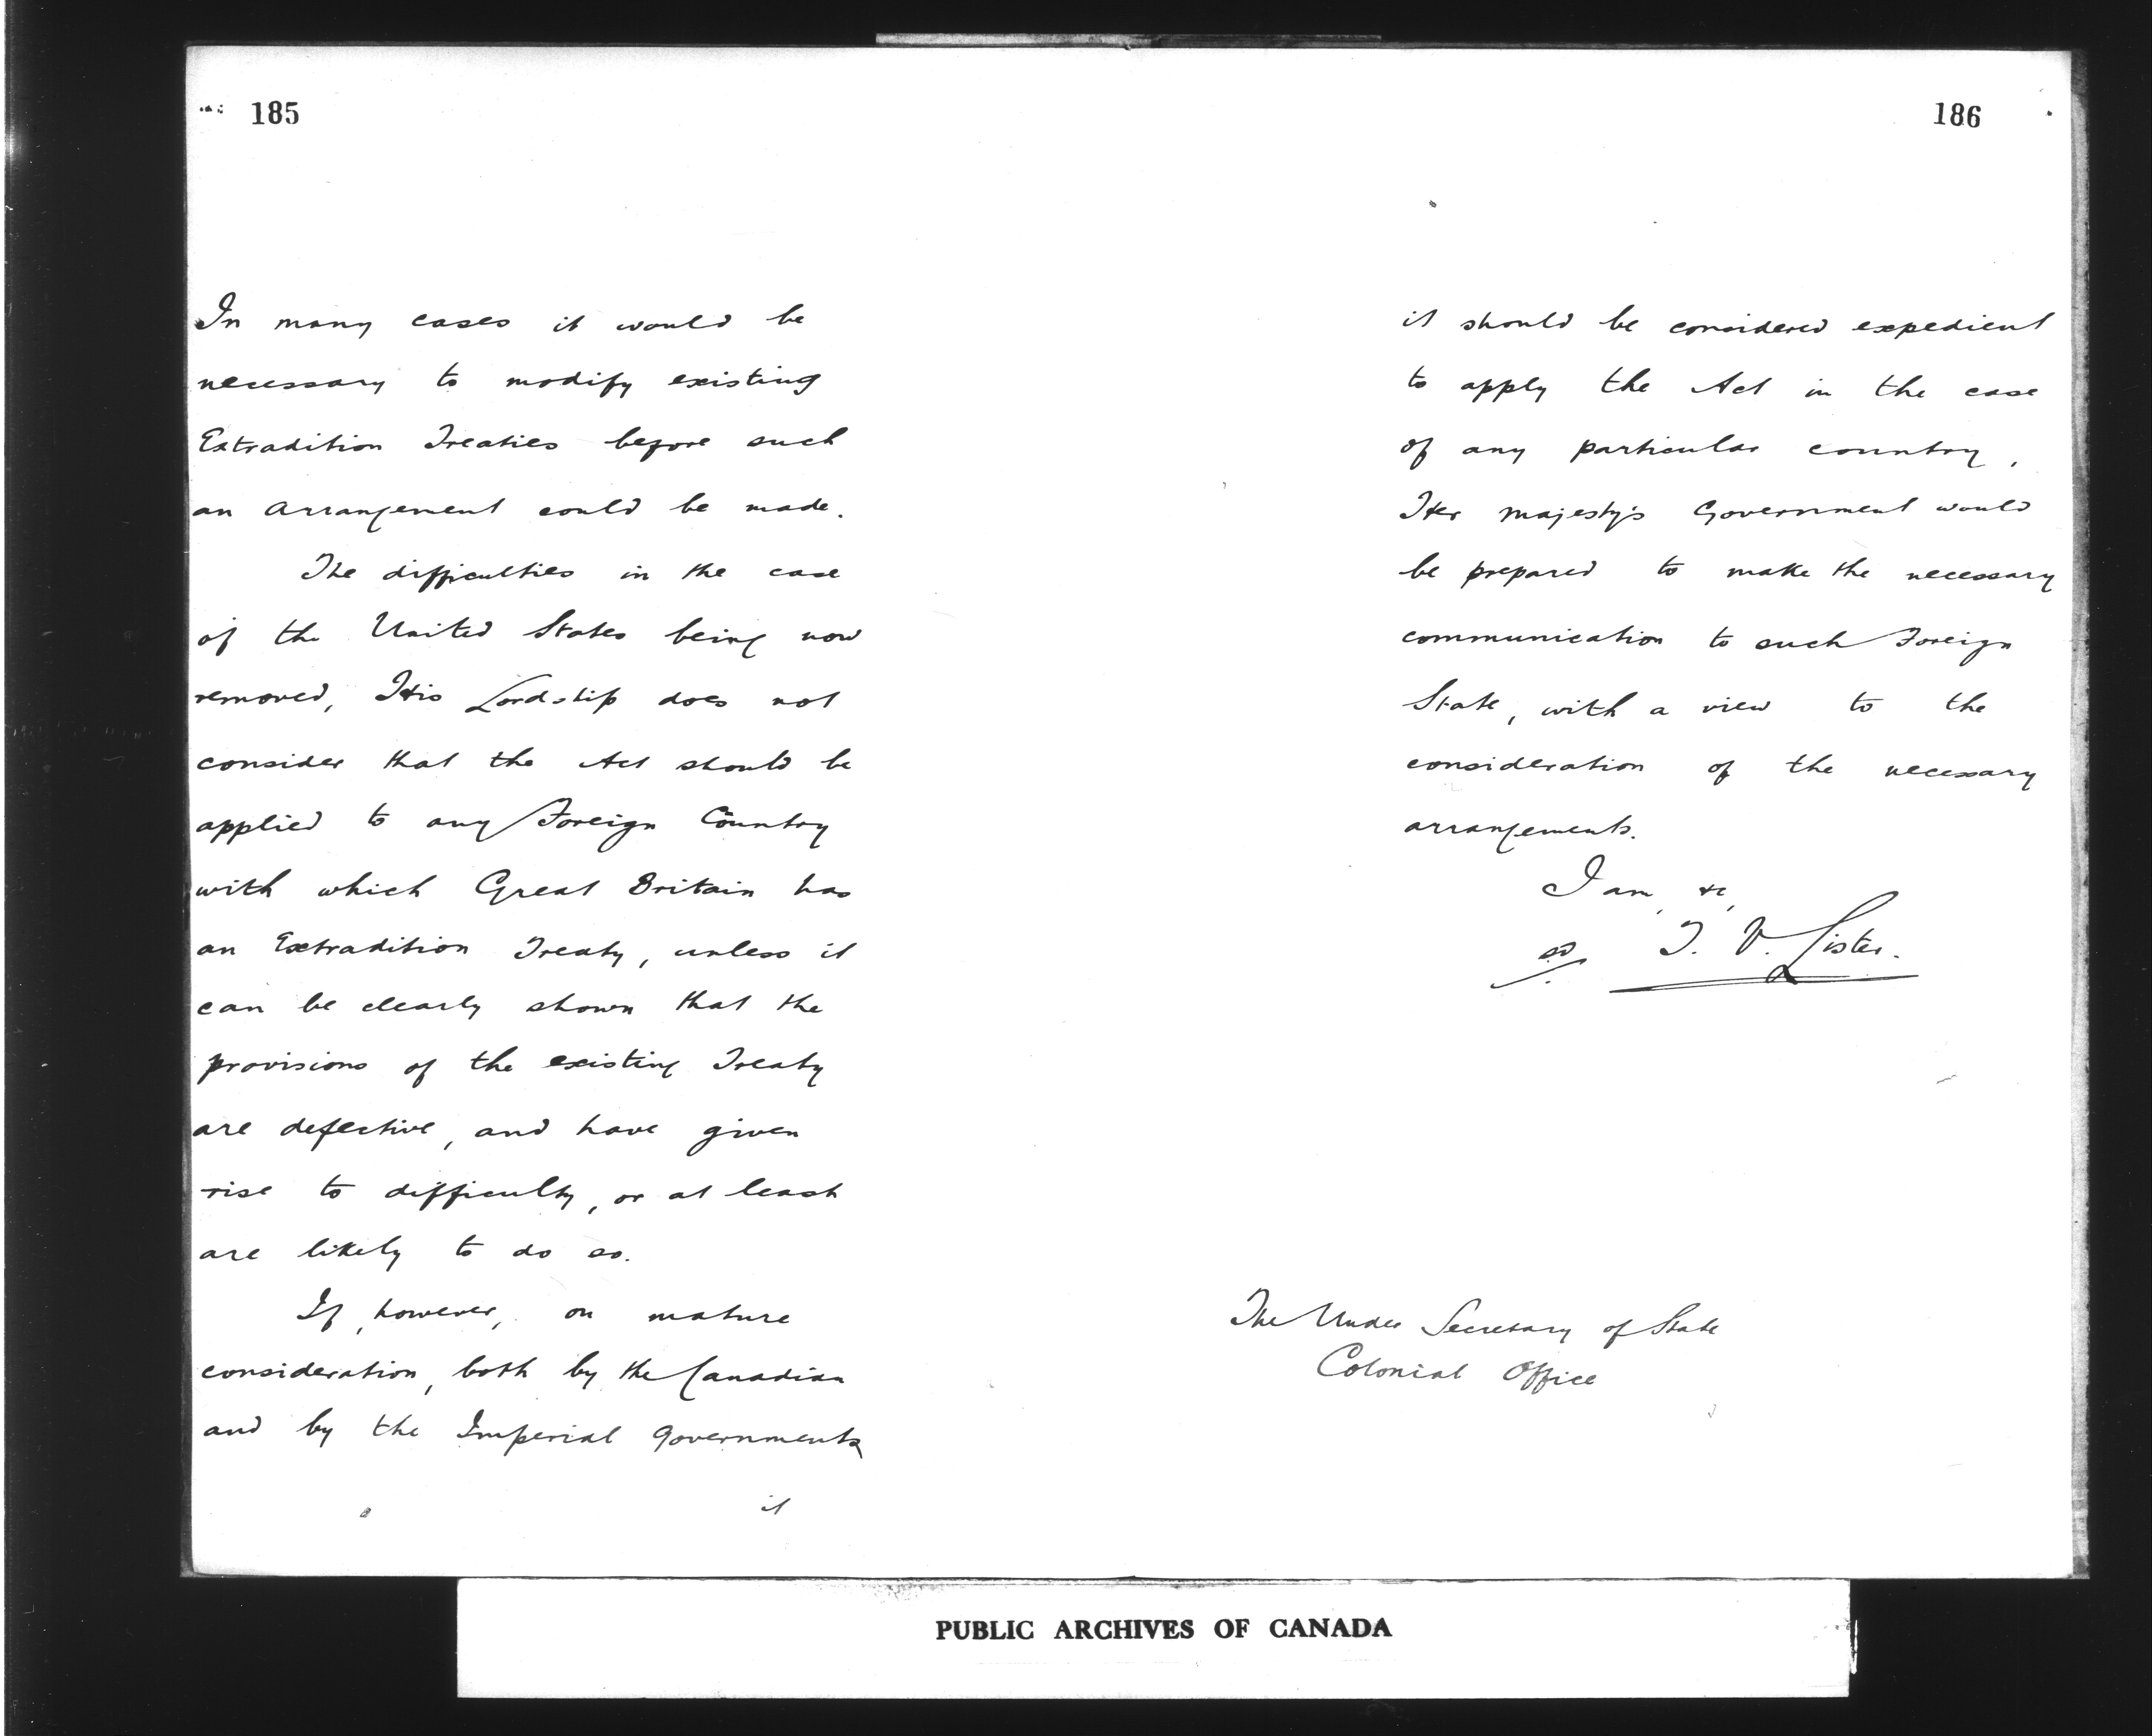 185
In many cases it would be
necessary to modify existing
Extradition Treaties before such
an arrangement could be made.
The difficulties in the case
of the United States being now
removed, His Lordship does not
consider that the Act should be
applied to any Foreign Country
with which Great Britain has
an Extradition Treaty, unless it
can be clearly shown that the
provisions of the existing Treaty
are defective, and have given
rise to difficulty, or at least
are likely to do so.
If, however, on mature
consideration, both by the Canadian
and by the Imperial Governments
it
186
it should be considered expedient
to apply the Act in the case
of any particular country,
Her Majesty's Government would
be prepared to make the necessary
communication to such Foreign
State, with a view to the
consideration of the necessary
arrangements.
I am, &c,
sd T. V. Lister.
The Under Secretary of State
Colonial Office
PUBLIC ARCHIVES OF CANADA